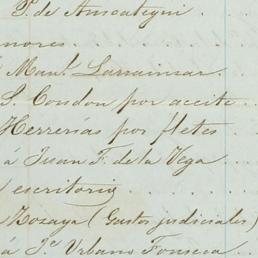 P. de Amcategui
nores
Manl. Larrainzar
S. Condon por aceite
Herrerías por fletes
á Juan F. de la Vega
escritorio
Zozaya (Gastos judiciales)
á Je. Urbano Fonseca